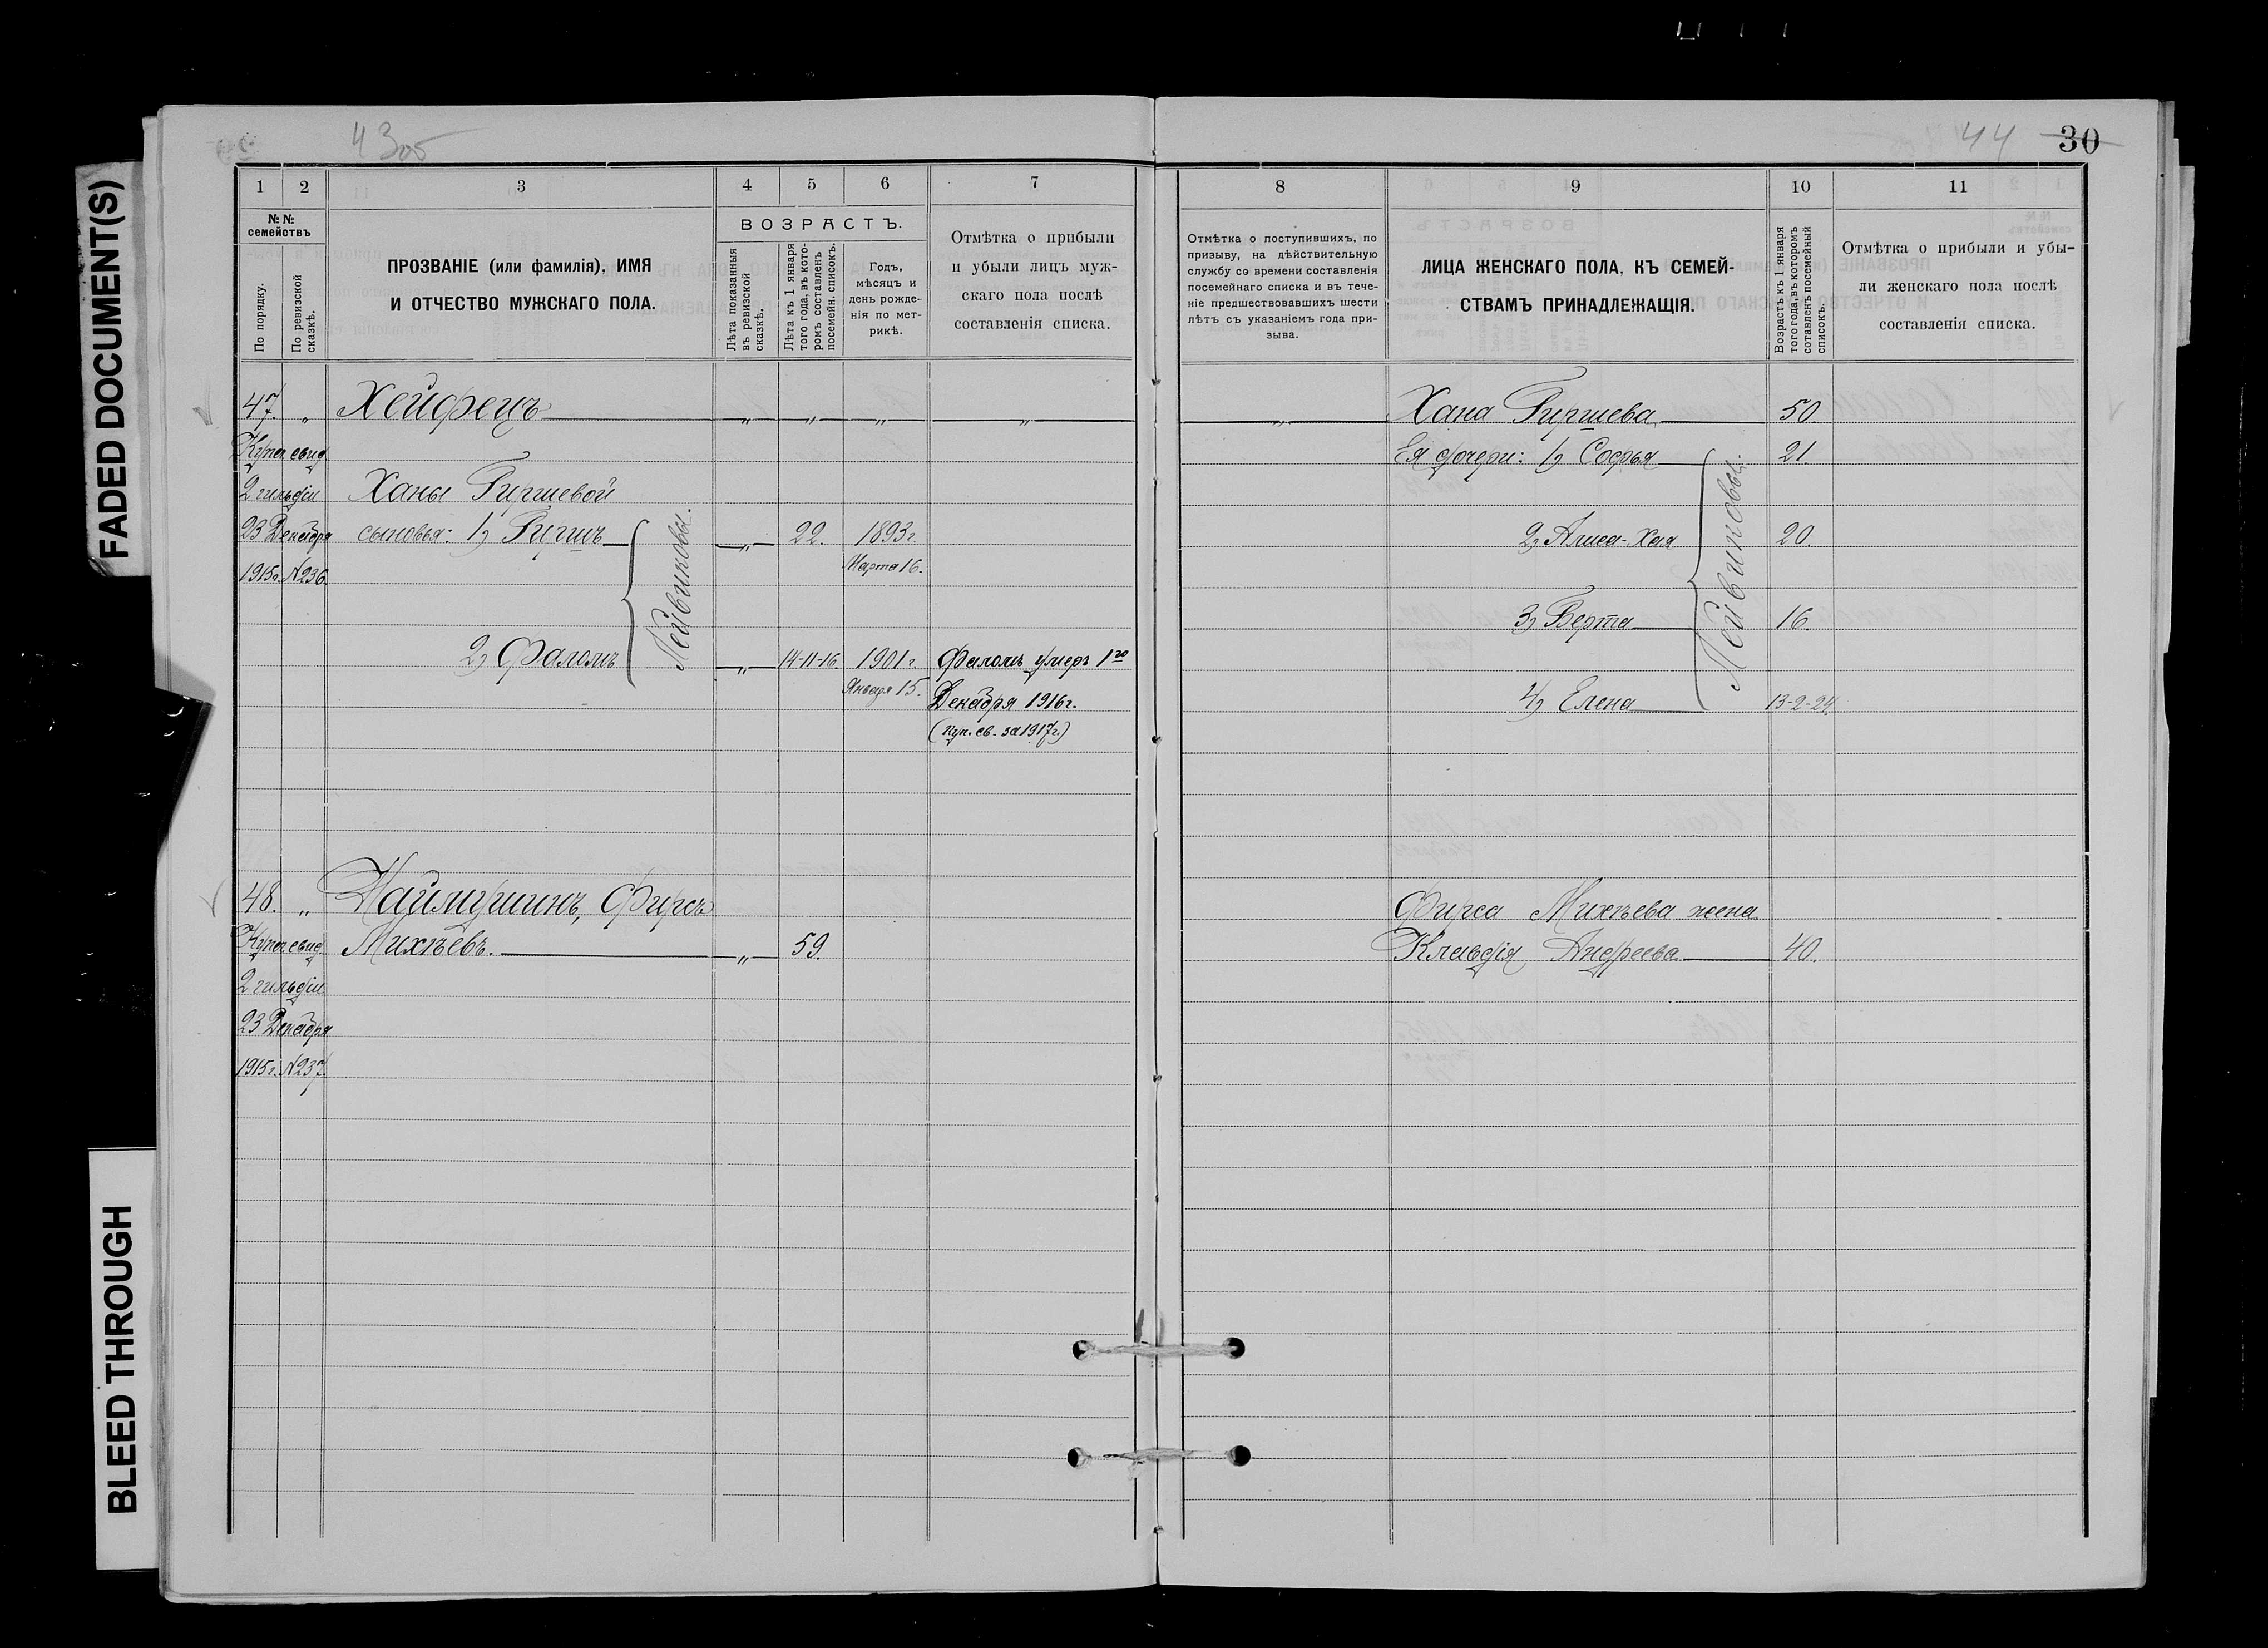 FADED DOCUMENT(S)
BLEED THROUGH
43об
44 30
1 2 3 4 5 6 7
№№ семействъ
По порядку.
По ревизской сказкѣ.
ПРОЗВАНІЕ (или фамилія), ИМЯ
И ОТЧЕСТВО МУЖСКАГО ПОЛА.
ВОЗРАСТЪ.
Лѣта показанныя
въ ревизской
сказкѣ.
Лѣта къ 1 января
того года, въ кото-
ромъ составленъ
посемейн. списокъ.
Годъ,
мѣсяцъ и
день рожде-
нія по мет-
рикѣ.
Отмѣтка о прибыли
и убыли лицъ муж-
скаго пола послѣ
составленія списка.
47. " Хейфецъ " " " "
Купеч. свид.
2 гильдіи Ханы Гиршевой
23 Декабря сыновья: 1) Гиршъ " 22. 1893г.
1915г. №236. Марта 16.
Лейвиковы.
2) Фалкъ " 14-11-16 1901г. Фалкъ умеръ 1го
Января 15. Декабря 1916г.
(Куп. св. за 1917г.)
48. " Наймушинъ, Фирсъ
Купеч. свид. Михѣевъ. " 59.
2 гильдіи
23 Декабря
1915г. №237.
8 9 10 11
Отмѣтка о поступившихъ, по
призыву, на дѣйствительную
службу со времени составленія
посемейнаго списка и въ тече-
ніе предшествовавшихъ шести
лѣтъ съ указаніемъ года при-
зыва.
ЛИЦА ЖЕНСКАГО ПОЛА, КЪ СЕМЕЙ-
СТВАМЪ ПРИНАДЛЕЖАЩІЯ.
Возрастъ къ 1 января
того года, въ которомъ
составленъ посемейный
списокъ.
Отмѣтка о прибыли и убы-
ли женскаго пола послѣ
составленія списка.
" Хана Гиршева 50.
Ея дочери: 1) Софья 21.
2) Хая 20.
3) Берта 16.
4) Елена 13-2-24.
Лейвиковы.
Фирса Михѣева жена
Клавдія Андреева 40.